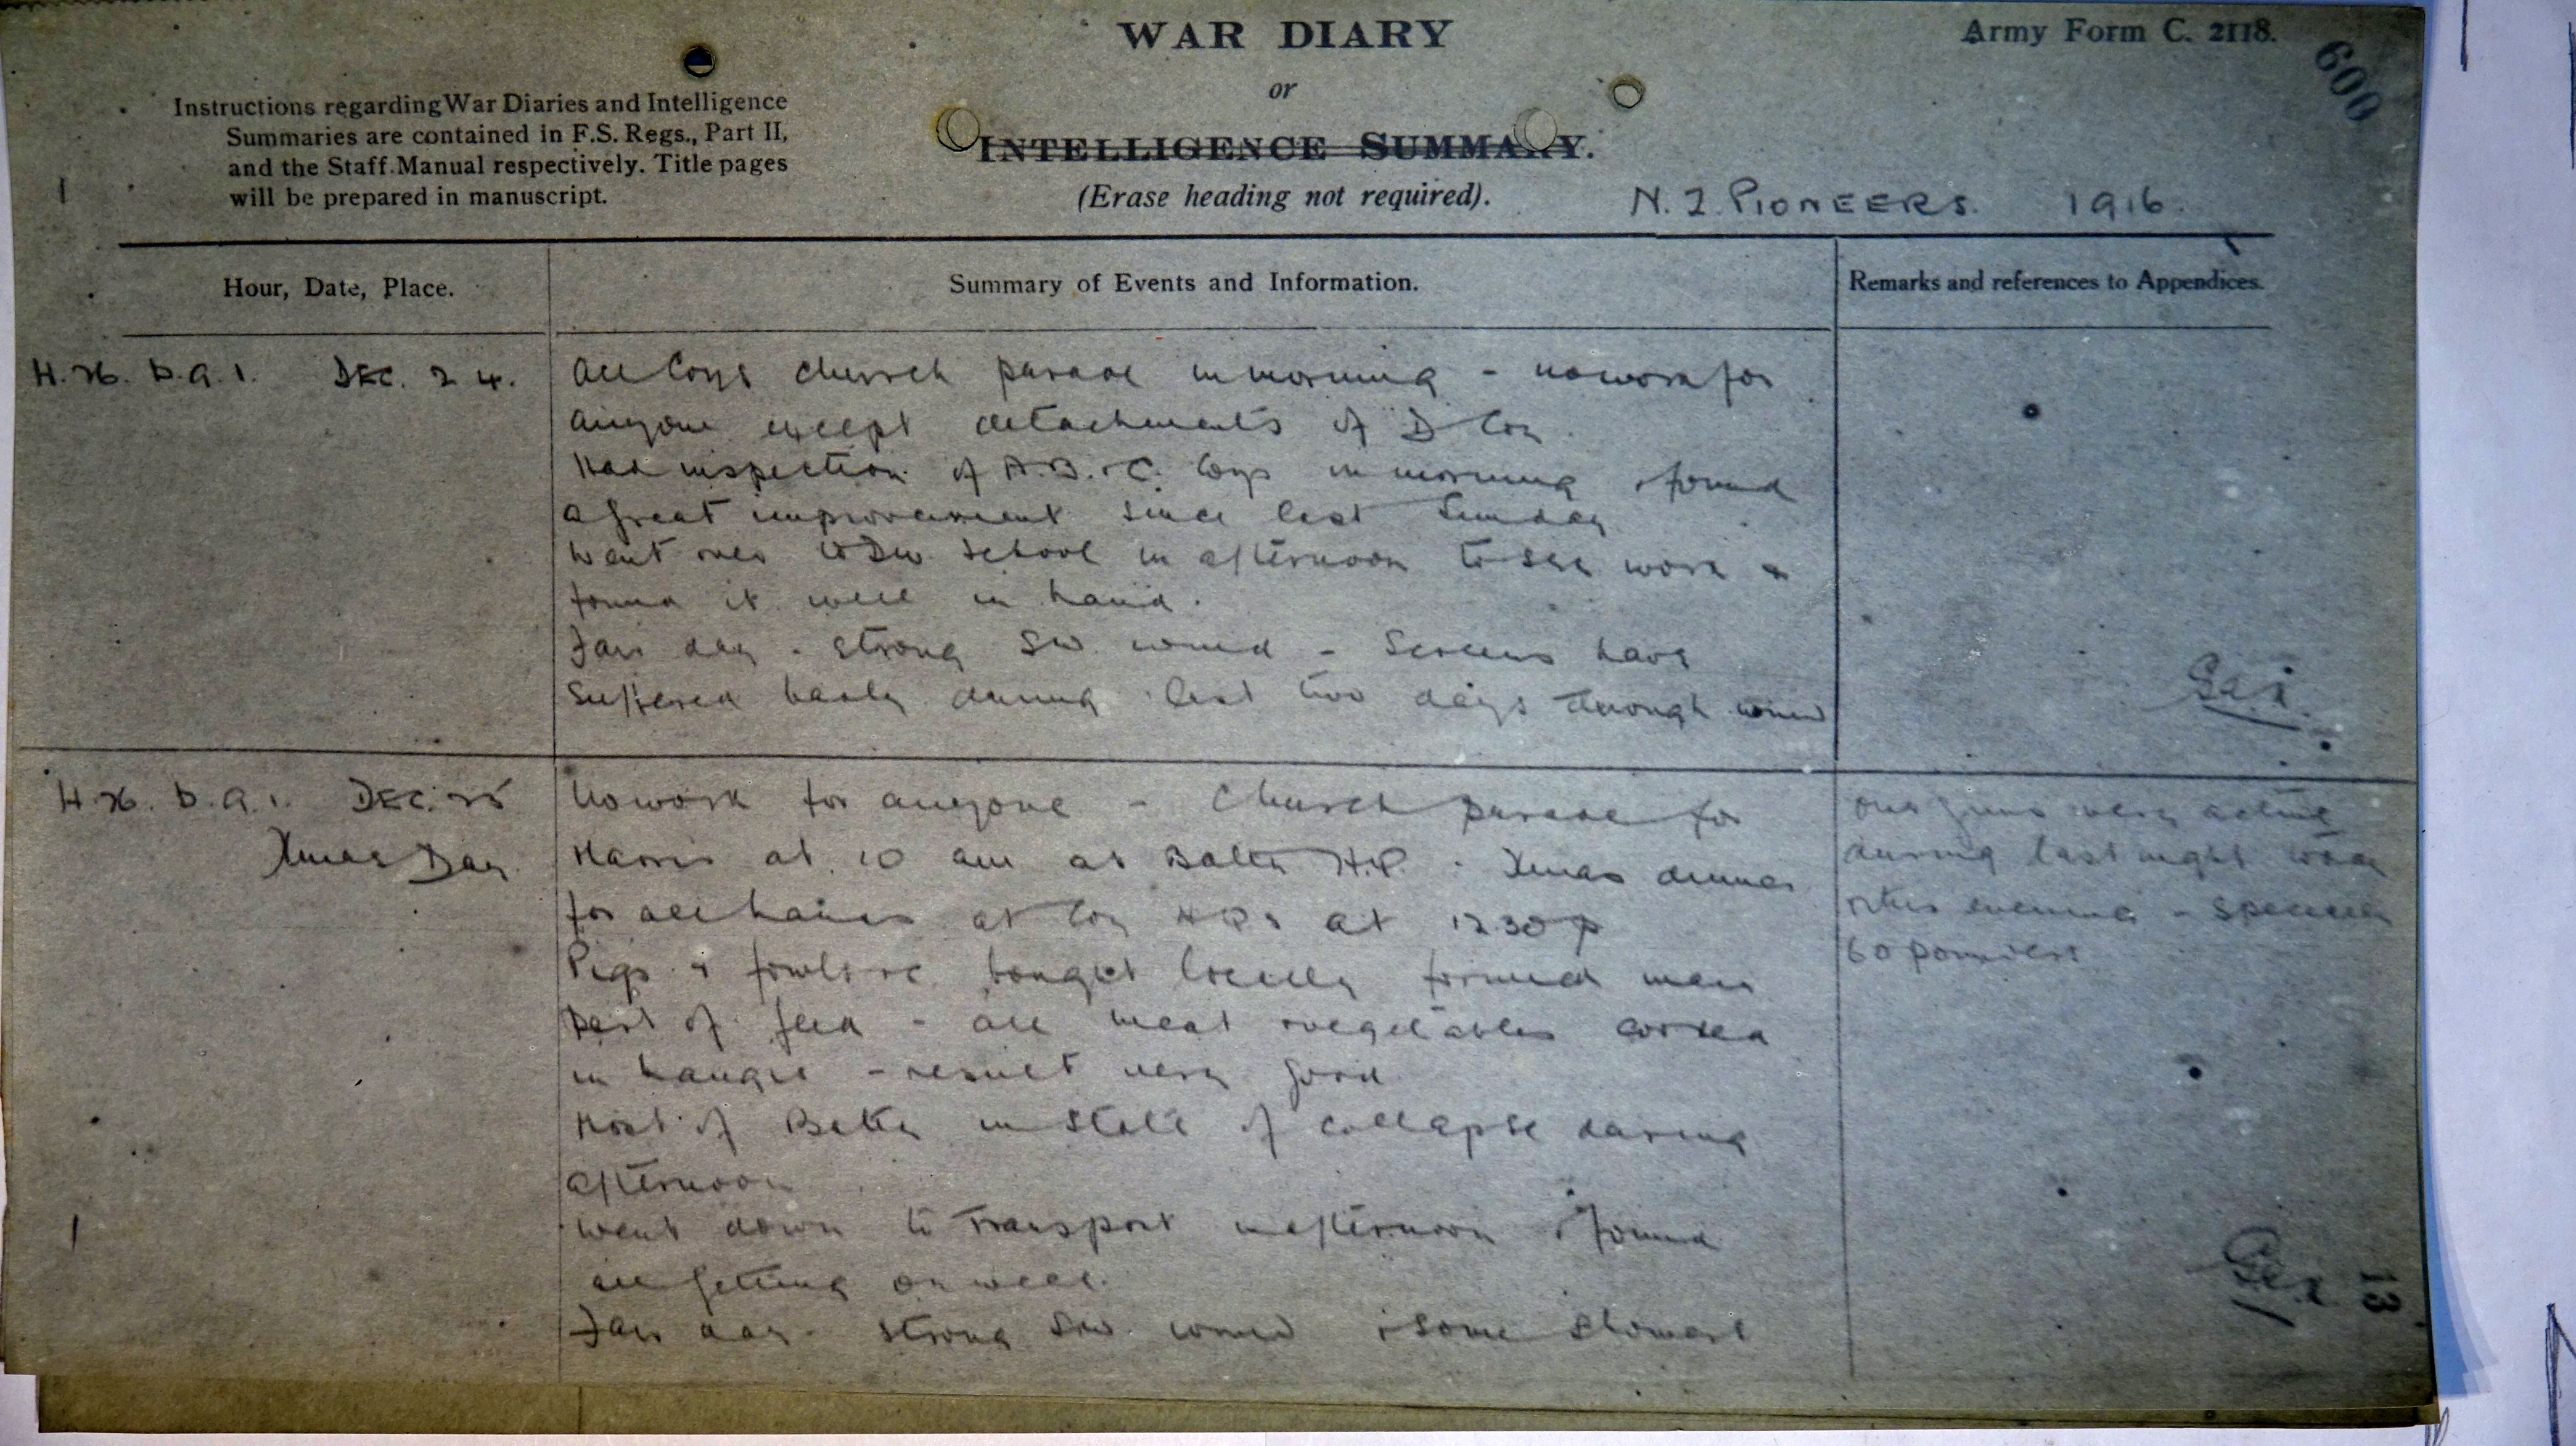 WAR DIARY
or
INTELLIGENCE SUMMARY.
(Erase heading not required).
Army Form C. 2118.
600
Instructions regarding War Diaries and Intelligence
Summaries are contained in F.S. Regs., Part II,
and the Staff Manual respectively. Title pages
will be prepared in manuscript.
N.Z. PIONEERS. 1916.
Hour, Date, Place.
Summary of Events and Information.
Remarks and references to Appendices.
H.26. b.9.1. DEC. 24.
All Coys church parade in morning - no work for
anyone except detachments of D Coy.
Had inspection of A.B. & C. Coys in morning & found
a great improvement since last Sunday
Went over to Div. School in afternoon to see work &
found it well in hand.
Fair day - strong SW. wind - Screens have
suffered badly during last two days through wind
H.26. b.9.1. DEC. 25
Xmas Day.
No work for anyone - Church parade for
Maoris at 10 am at Battn H.Q. - Xmas dinner
for all hands at Coy HQrs at 12.30 p
Pigs & fowls &c. bought locally formed main
part of feed - all meat & vegetables cooked
in hangis - result very good
Most of Battn in state of collapse during
afternoon
Went down to Transport in afternoon & found
all getting on well.
Fair day - strong SW. wind & some showers
our guns very active
during last night today
& this evening - specially
60 pounders
13